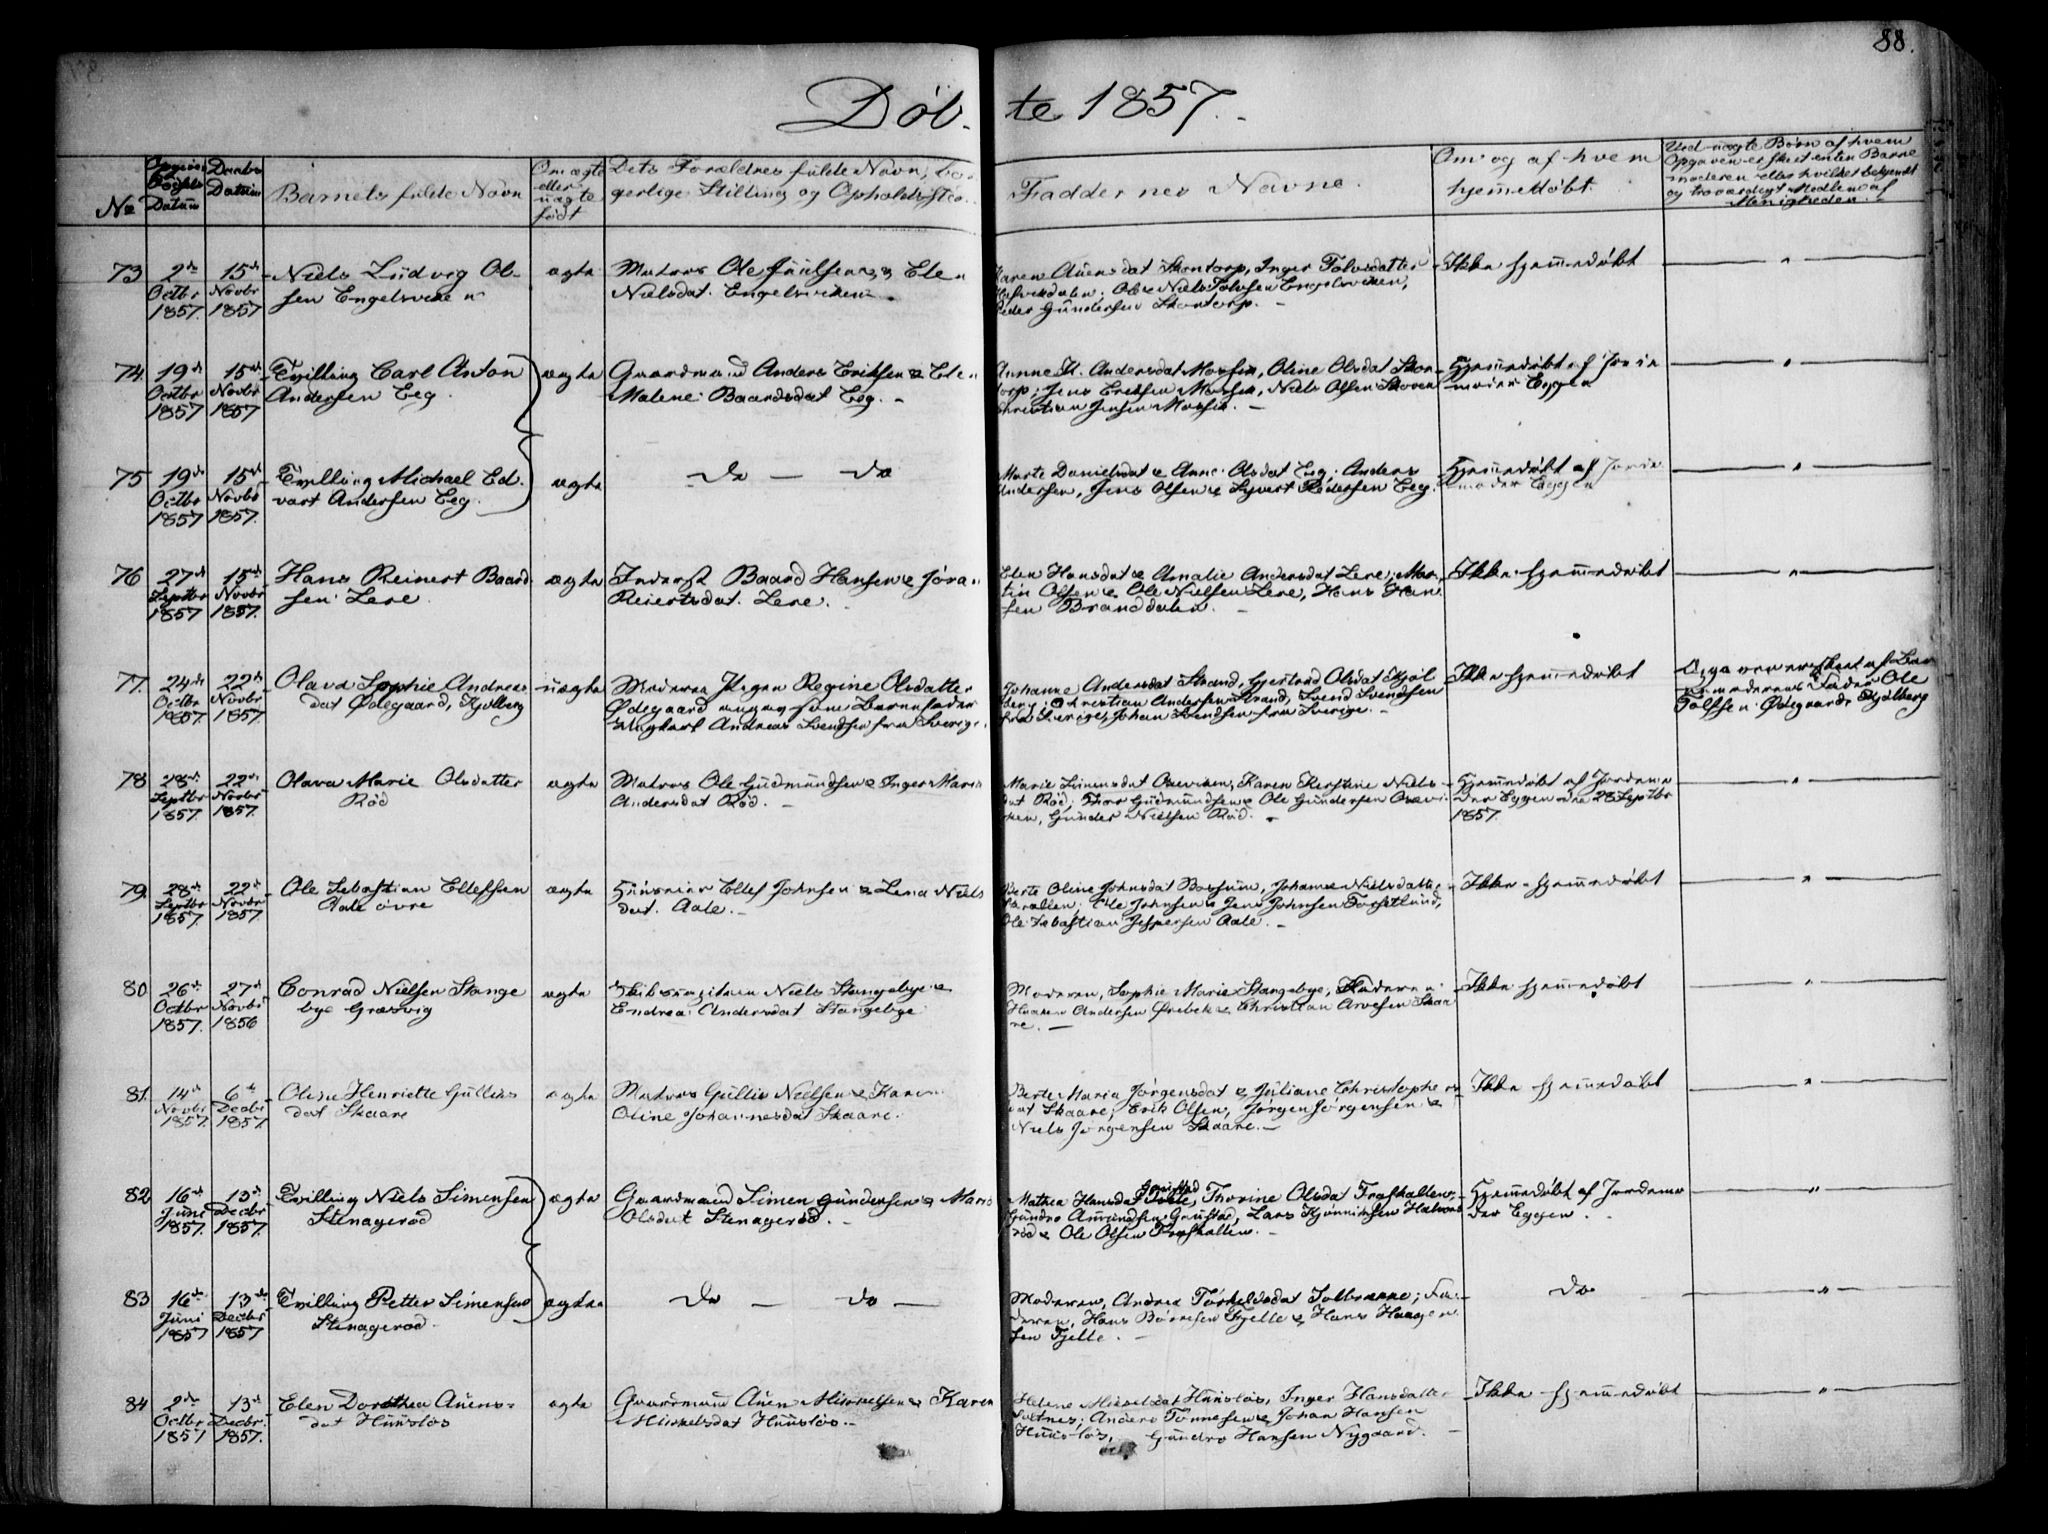 88.
Døb- te 1857.-
No
Datum
Daabs Datum
Barnets fulde Navn
Om ægte eller uægte født
Dets Forældres fulde Navn, bor-
gerlige Stilling og Opholdssted.
Faddernes Navne.
Om og af hvem
hjemedøbt.
Ved uægte Børn af hvem
Opgaven er skeet enten Barne
moderen eller hvilket bekjendt
og troværdigt Medlem af
Menigheden.-
73 2de Octbr 1857. 15de Novbr 1857
Niels Ludvig Ol-
sen Engelsviken
ægte
Matros Ole Juulsen & Elen
Nielsdat. Engelsviken.
Karen Auensdat Skontorp, Inger Tolvsdatter
Ole Niels Tolvsen Engelsviken,
Peder Gundersen Skontorp.-
Ikke hjemmedøbt
74. 19de Octbr 1857 15de Novbr 1857
Tvilling Carl Anton
Andersen Eeg.
ægte
Gaardmand Anders Eriksen & Elen
Malene Baardsdat Eeg.-
Anne M. Andersdat Mossik, Oline Olsdat Skon-
torp; Jens Eriksen Mossik, Niels Olsen Skoven
Christian Jensen Mossik.-
Hjemmedøbt af Jorde-
moder Eggen
75 19de Octbr 1857 15de Novbr 1857.
Tvilling Michael Ed-
vart Andersen Eeg.
ægte
do - do
Marte Danielsdat & Anne Olsdat Eeg; Anders
Andersen, Jens Olsen & Syvert Pedersen Eeg.
Hjemmedøbt af Jorde-
moder Eggen
76 27de Septbr 1857 15de Novbr 1857.
Hans Reinert Baard-
sen Lere.
ægte
Inderst Baard Hansen & Jøra
Reiertsdat. Lere.
Elen Hansdat & Amalie Andersdat Lere; Mar-
tin Olsen & Ole Nielsen Lere, Hans Han-
sen Branddalen.-
Ikke hjemmedøbt
77. 24de Octbr 1857 22de Novbr 1857
Olava Sophie Andreas
dat Ødegaard, Kjølberg
uægte
Moderen Pigen Regine Olsdatter
Ødegaard angav som Barnefader
Ungkarl Andreas Svendsen fra Sverige.
Johanne Andersdat Strand, Gjerlaud Olsdat Kjøl-
berg; Christian Andersen Strand, Svend Svendsen
fra Sverige, Johan Svendsen fra Sverige.-
Ikke hjemmedøbt
Opgaven er skeet af Bar-
nemoderens Fader Ole
Tolfsen Ødegaard Kjølberg
78 28de Septbr 1857. 22de Novbr 1857.
Olava Marie Olsdatter
Rød
ægte
Matros Ole Gudmundsen & Inger Maria
Andersdat Rød.-
Marie Simensdat Oreviken, Karen Kerstine Niels-
dat Rød; Thor Gudmundsen & Ole Gundersen Orevi-
ken, Gunder Nielsen Rød.-
Hjemmedøbt af Jordemo-
der Eggen den 28 Septbr
1857.
79. 28de Septbr 1857. 22de Novbr 1857.
Ole Sebastian Ellefsen
Aale øvre
ægte
Huusmand Ellef Johnsen & Lena Niels
dat. Aale.-
Berte Oline Johnsdat Bossum, Johanne Nielsdatter
Ole Johnsen & Jens Johnsen Torsetlund,
Ole Sebastian Jespersen Aale.-
Ikke hjemmedøbt
80 26de Octbr 1857. 27de Novbr 1856
Conrad Nielsen Stange
bye Græsvig
ægte
Skibscapitain Niels Stangebye &
Endrea Andersdat Stangebye
Moderen, Sophie Marie Stangebye; Faderen
Haaken Andersen Ørebek & Christian Arvesen Skaa
re.-
Ikke hjemmedøbt
81. 14de Novbr 1857. 6te Decbr 1857.
Oline Henriette Gulliks
dat Skaare
ægte
Matros Gullik Nielsen & Karen
Oline Johannesdat Skaare.
Berte Maria Jørgensdat & Juliane Christophers
dat Skaare; Erik Olsen, Jørgen Jørgensen &
Niels Jørgensen Skaare.-
Ikke hjemmedøbt
82 16de Juni 1857. 13de Decbr 1857.
Tvilling Niels Simensen
Stenagerød
ægte
Gaardmand Simen Gundersen & Maria
Olsdat Stenagerød.-
Mathea Hansdat Thorine Olsdat Troskallen;
Gundro Amundsen Gaustad, Lars Kjønniksen Halvors
rød & Ole Olsen Troskallen.-
Hjemmedøbt af Jordemo
der Eggen.
83 16de Juni 1857 13de Decbr 1857
Tvilling Petter Simensen
Stenagerød.
ægte
do - do -
Moderen, Andrea Torkildsdat Solbrække; Fa-
deren, Hans Børresen Fjelle & Hans Haagen-
sen Fjelle.-
do
84 2de Octbr 1857 13de Decbr 1857.
Elen Dorothea Auens-
dat Huusløs
ægte
Gaardmand Auen Mikkelsen & Karen
Mikkelsdat Huusløs.-
Helene Mikkelsdat Huusløs, Inger Hansdatter
Anders Tønnesen & Johan Hansen
Huusløs, Gundro Hansen Nygaard.-
Ikke hjemmedøbt